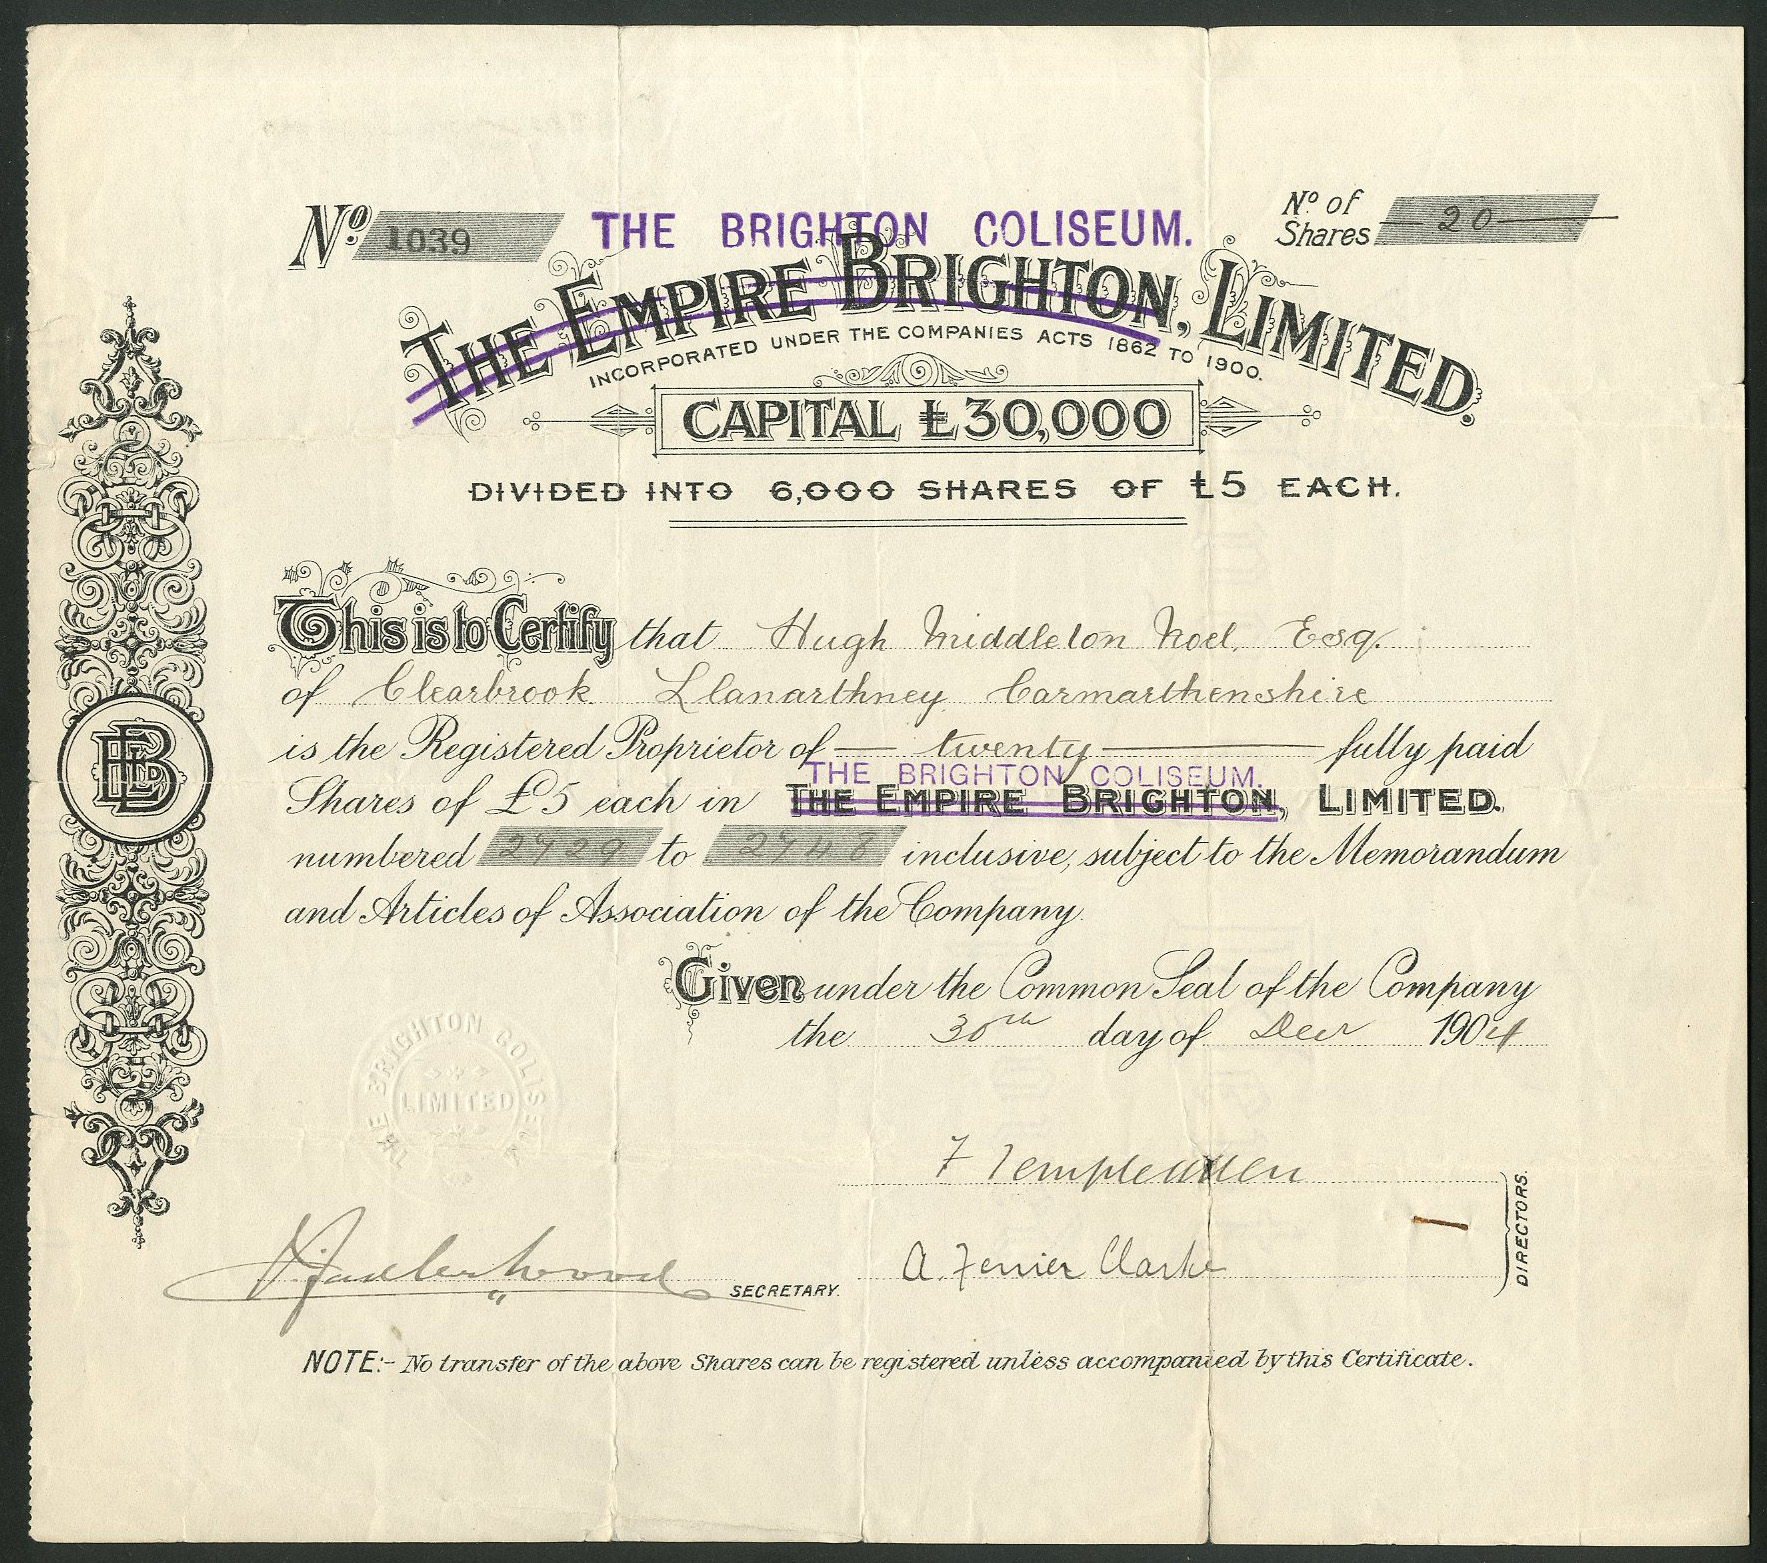 No. 1039
THE BRIGHTON COLISEUM.
No. of Shares 20
THE EMPIRE BRIGHTON, LIMITED.
INCORPORATED UNDER THE COMPANIES ACTS 1862 TO 1900.
CAPITAL £30,000
DIVIDED INTO 6,000 SHARES OF £5 EACH.
This is to Certify that Hugh Middleton Noel, Esq.
of Clearbrook Llanarthney Carmarthenshire
is the Registered Proprietor of twenty fully paid
THE BRIGHTON COLISEUM.
Shares of £5 each in THE EMPIRE BRIGHTON, LIMITED.
numbered 2929 to 2948 inclusive, subject to the Memorandum
and Articles of Association of the Company.
Given under the Common Seal of the Company
the 30th day of Decr 1904
THE BRIGHTON COLISEUM
LIMITED
DIRECTORS.
A. Ferrier Clarke
SECRETARY.
NOTE:- No transfer of the above Shares can be registered unless accompanied by this Certificate.